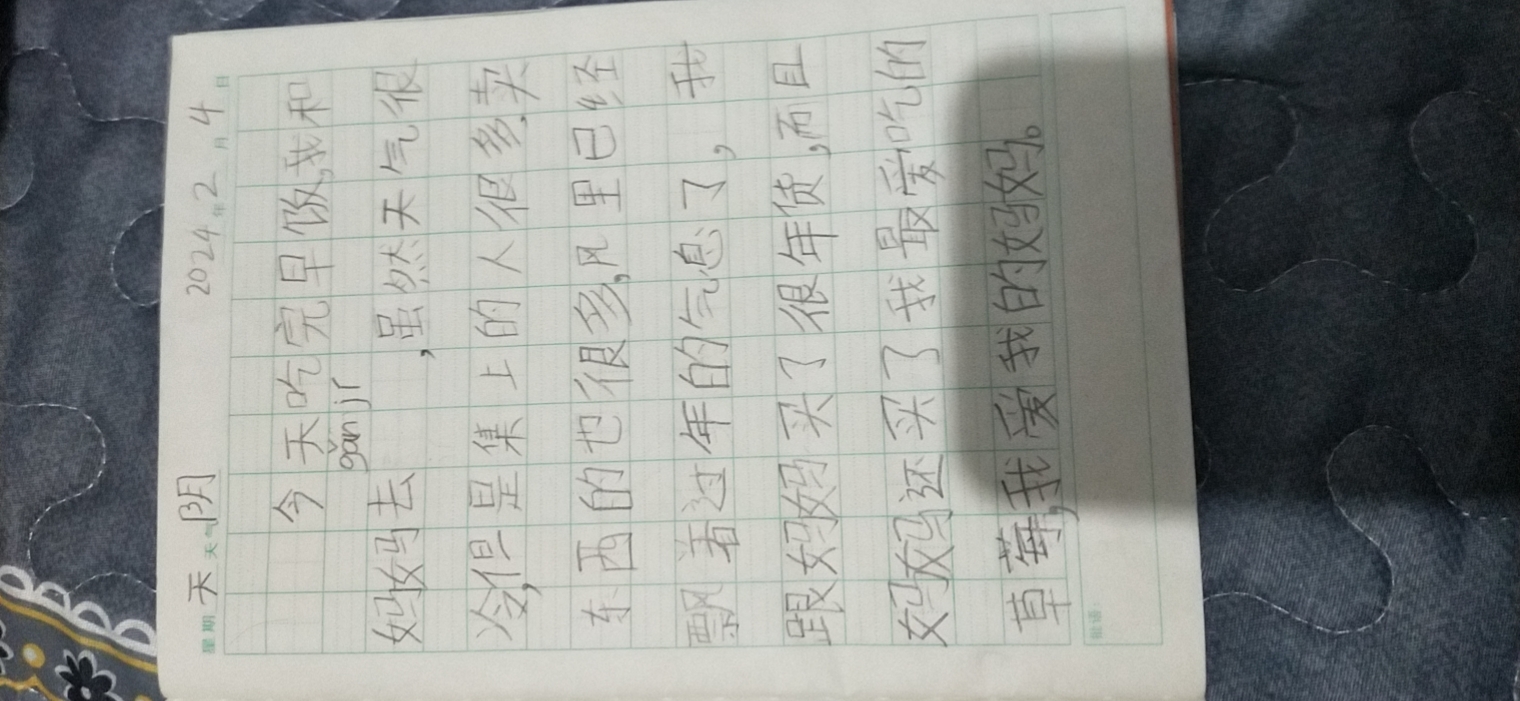 星期 天 天气 阴 2024 年 2 月 4 日
今天吃完早饭,我和
gǎn jí
妈妈去 ,虽然天气很
冷,但是集上的人很多,卖
东西的也很多,风里已经
飘着过年的气息了,我
跟妈妈买了很年货,而且
妈妈还买了我最爱吃的
草莓,我爱我的妈妈。